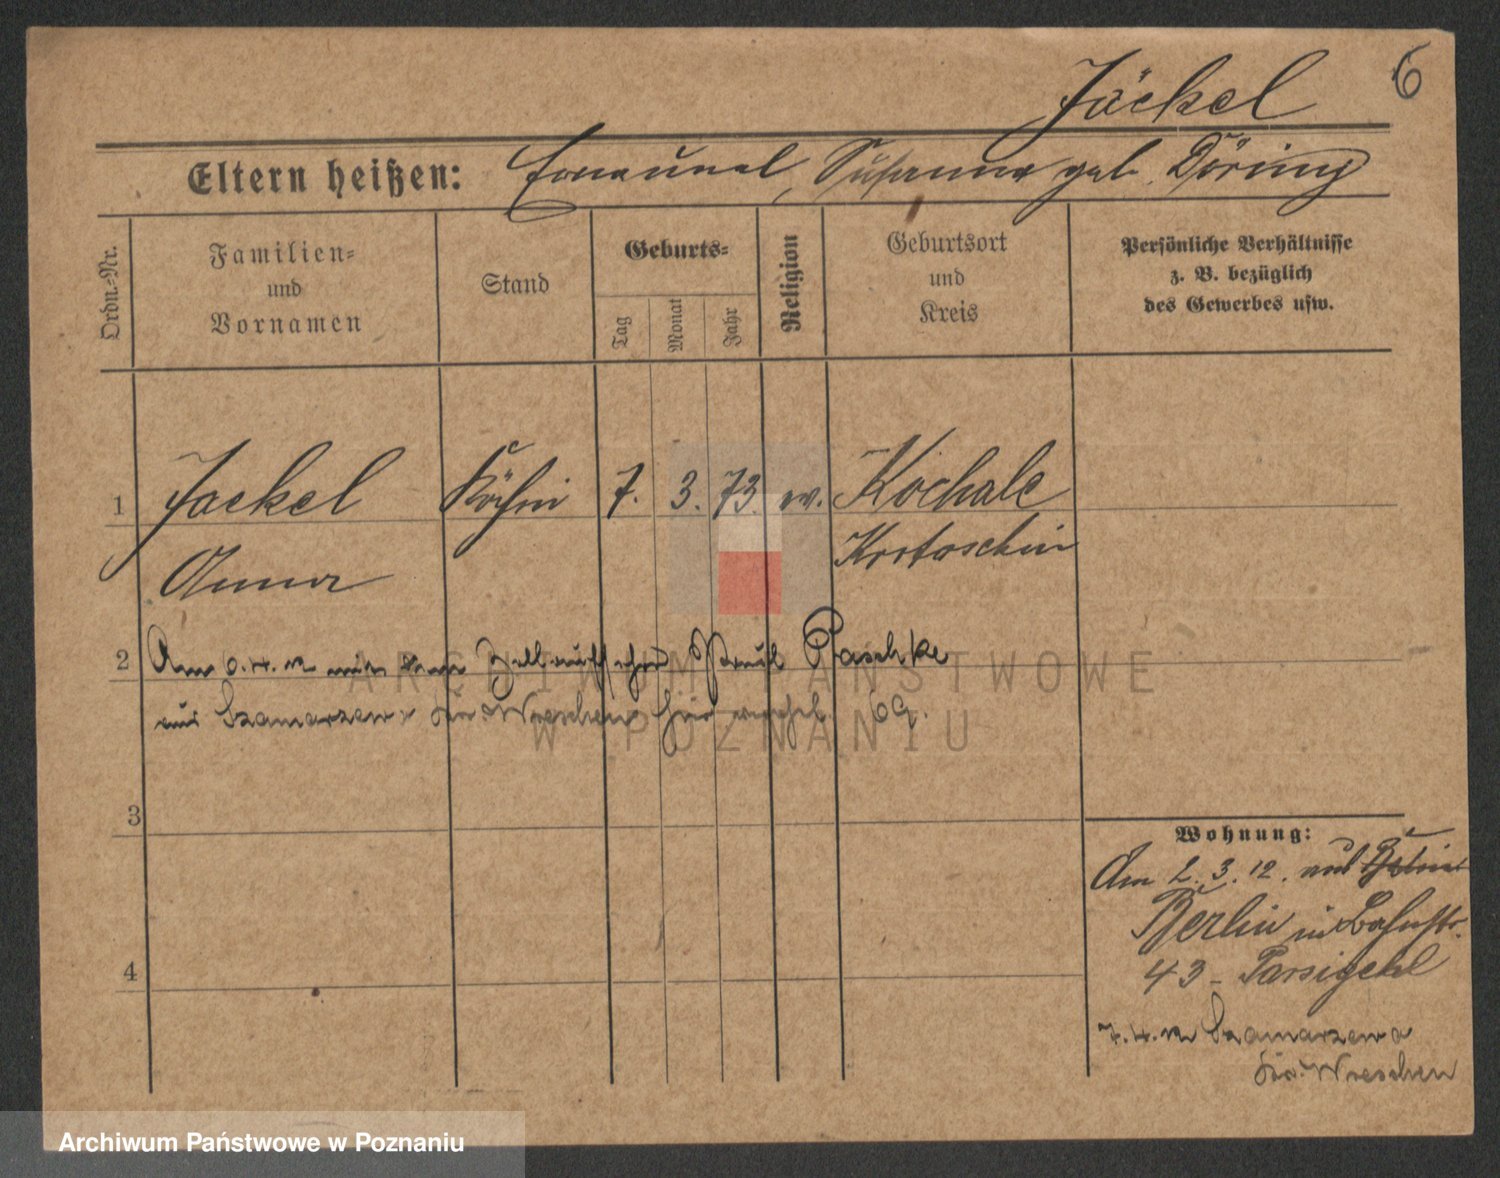 Jäckel
6
Eltern heißen: Emanuel, Susanna geb. Döring
Ordn.-Nr.
Familien-
und
Vornamen
Stand
Geburts-
Tag
Monat
Jahr
Religion
Geburtsort
und
Kreis
Persönliche Verhältnisse
z. B. bezüglich
des Gewerbes usw.
1 Jaekel Köchin 7. 3. 73. ev. Kochale
Anna Krotoschin
2 Am 6.4.12 mit dem Paul Paschke
aus Szamarzewo Kr. Wreschen hier 69.
3
4
Wohnung:
Am 2.3.12. aus Berlin
Berlin Bahnstr.
43 -
7.4.12 Szamarzewo
Kr. Wreschen
ARCHIWUM PAŃSTWOWE
W POZNANIU
Archiwum Państwowe w Poznaniu